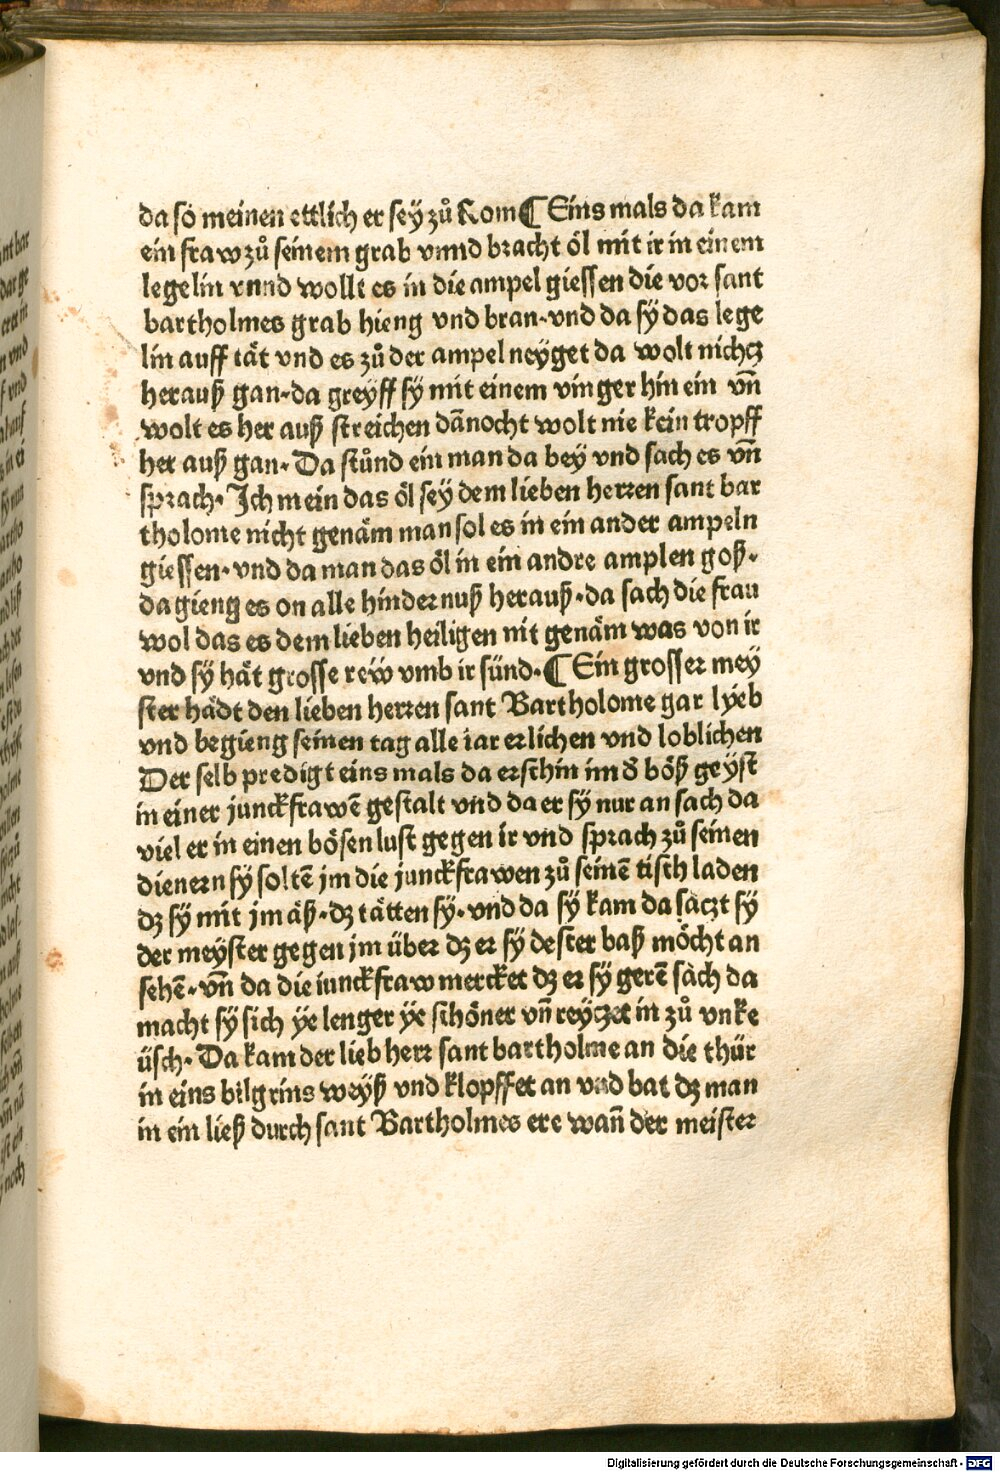 da so meinen ettlich er sey zů Rom ¶ Eins mals da kam
ein fraw zů seinem grab vnnd bracht öl mit ir in einem
legelin vnnd wollt es in die ampel giessen die vor sant
bartholmes grab hieng vnd bran· vnd da sÿ das lege
lin auff tät vnd es zů der ampel neÿget da wolt nichcz
herauß gan· da greÿff sÿ mit einem vinger hin ein vñ
wolt es her auß streichen dānocht wolt nie kein tropff
her auß gan· Da stůnd ein man da bey vnd sach es vñ
sprach· Jch mein das öl sey dem lieben herren sant bar
tholome nicht genäm man sol es in ein ander ampeln
giessen· vnd da man das öl in ein andre amplen goß·
da gieng es on alle hindernuß herauß· da sach die frau
wol das es dem lieben heiligen nit genäm was von ir
vnd sÿ hät grosse rew̎ vmb ir sünd· ¶ Ein grosser mey
ster hädt den lieben herren sant Bartholome gar lyeb
vnd begieng seinen tag alle iar erlichen vnd loblichen
Der selb predigt eins mals da erschin im d̕ böß geyst
in einer junckfrawē gestalt vnd da er sÿ nur an sach da
viel er in einen bösen lust gegen ir vnd sprach zů seinen
dienern sÿ soltē jm die junckfrawen zů seinē tisch laden
dz sÿ mit jm äß· dz tätten sÿ· vnd da sÿ kam da säczt sÿ
der meÿster gegen jm über dz er sÿ dester baß möcht an
sehē· vñ da die iunckfraw mercket dz er sÿ gerē säch da
macht sÿ sich ÿe lenger ÿe schöner vñ reyczet in zů vnke
üsch· Da kam der lieb herr sant bartholme an die thür
in eins bilgrins weÿß vnd klopffet an vnd bat dz man
in ein ließ durch sant Bartholmes ere wañ der meister
Digitalisierung gefördert durch die Deutsche Forschungsgemeinschaft - DFG